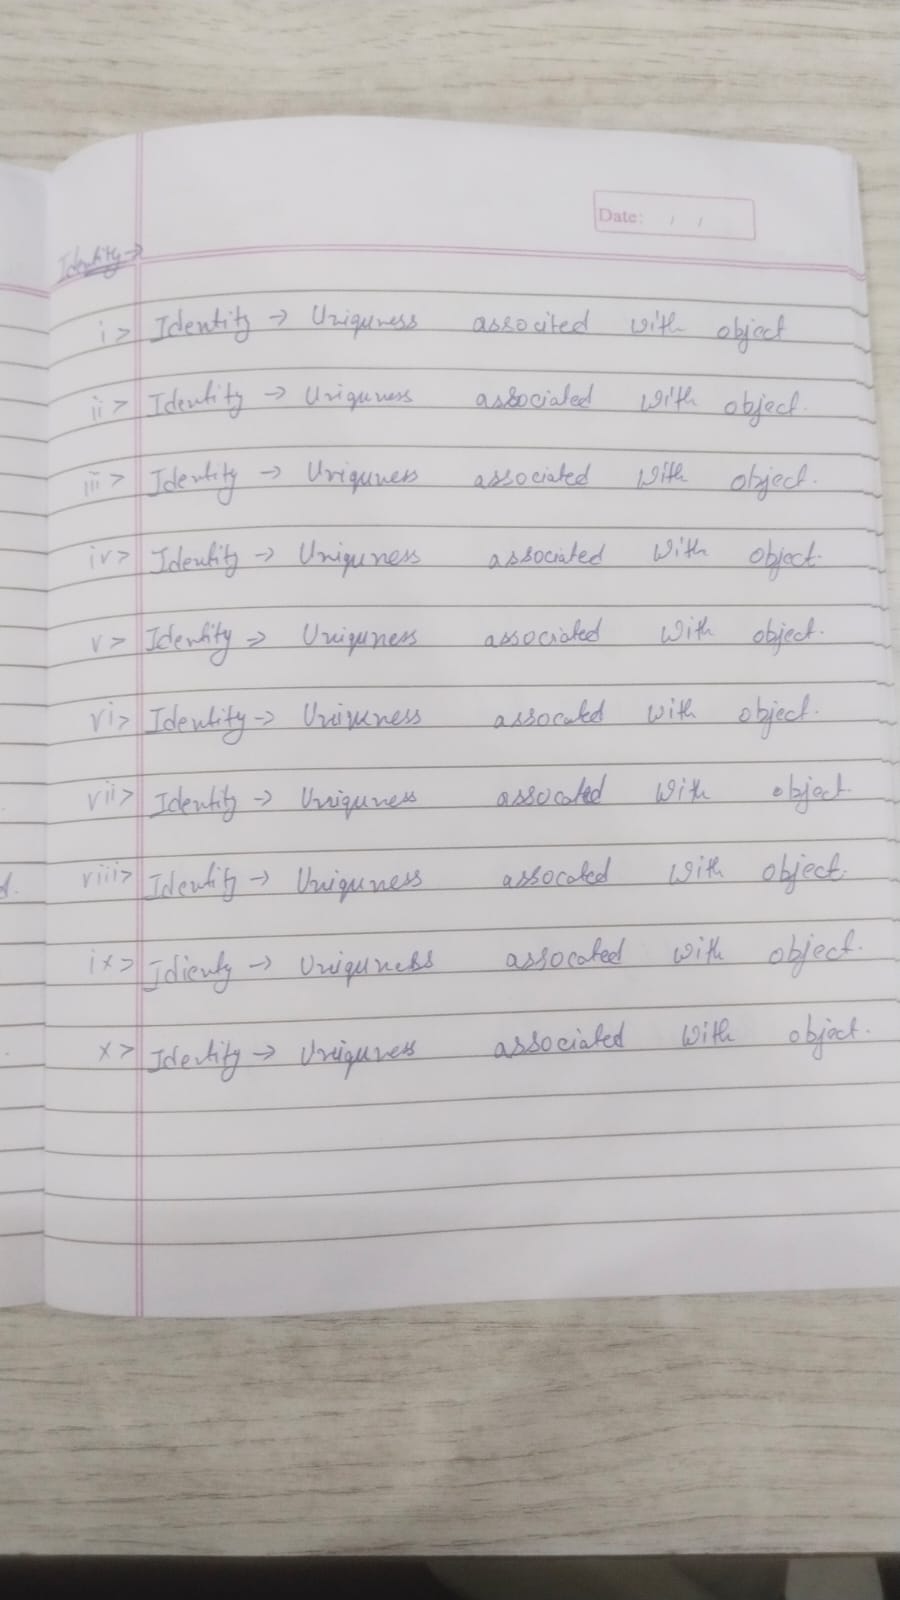 Date: / /
Identity →
i> Identity → Uniquness associted with object
ii> Identity → Uniquness associated with object.
iii> Identity → Uniquness associated with object.
iv> Identity → Uniquness associated with object.
v> Identity → Uniquness associated with object.
vi> Identity → associated with object.
vii> Identity → Uniquness assocated with object.
viii> Identity → Uniquness assocated with object.
ix> Idienty → Uniquness assocated with object.
x> Identity → Uniquness associated with object.
d.